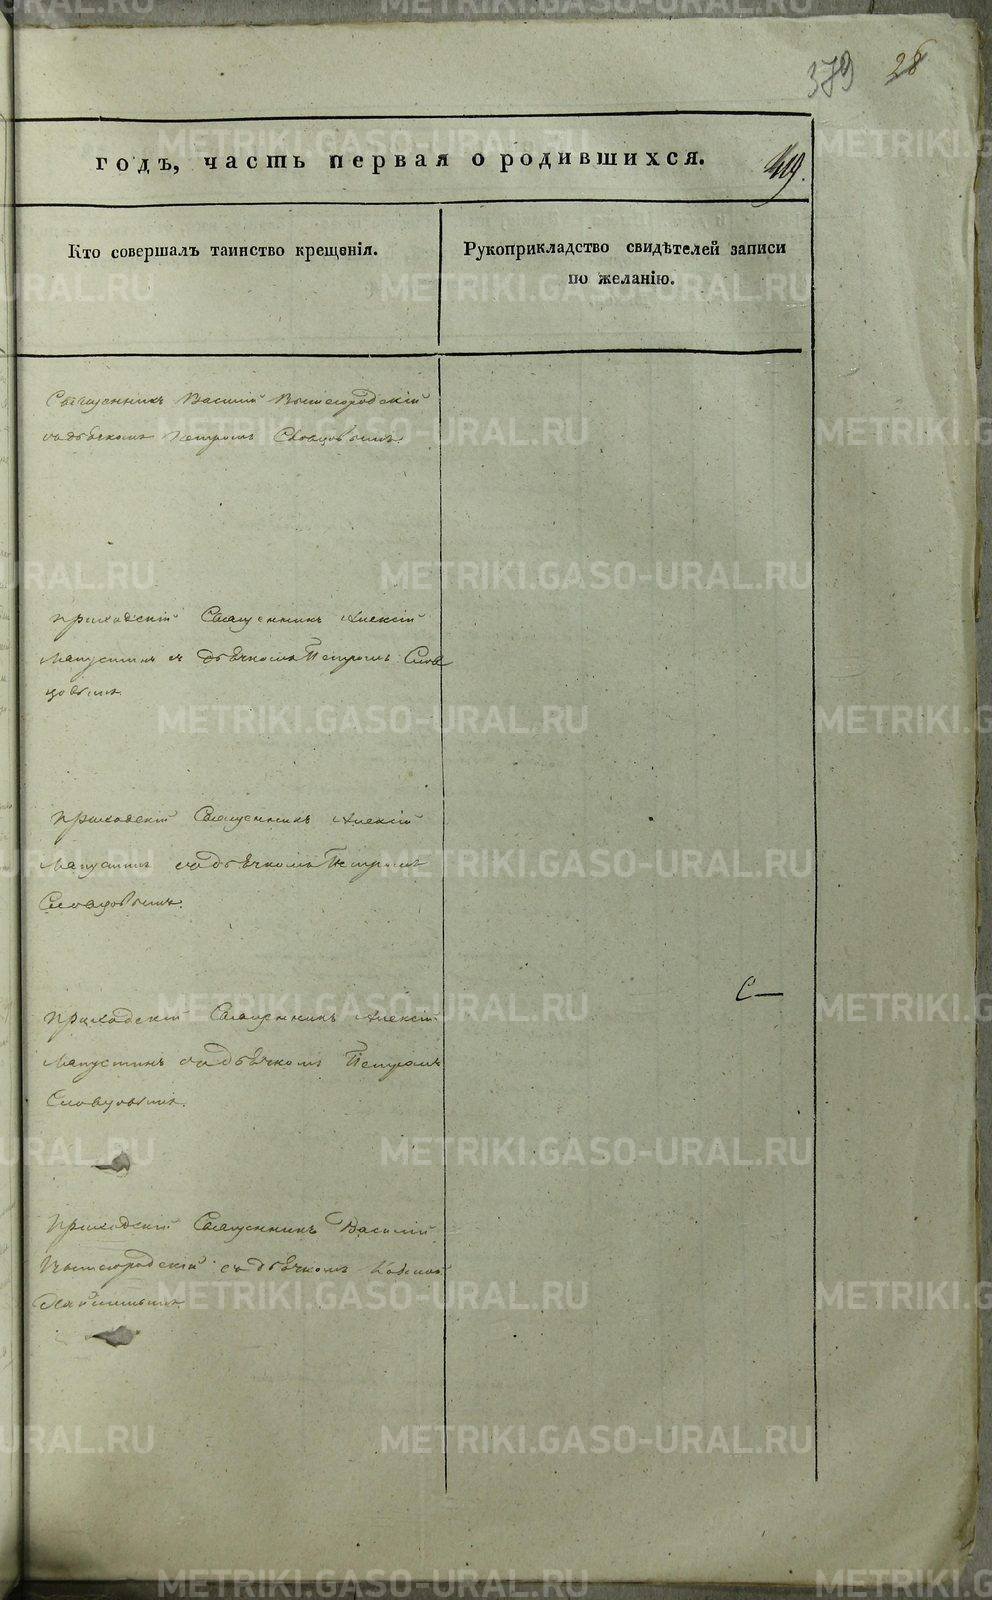 379 28
годъ, часть первая о родившихся. 419.
Кто совершалъ таинство крещенія.
Рукоприкладство свидѣтелей записи
по желанію.
Священникъ Василій Вышегородскій
съ дьячкомъ Петромъ Словцовымъ.
Приходскій Священникъ Алексій
Мапустинъ съ дьячкомъ Петромъ Слов
цовымъ.
Приходскій Священникъ Алексій
Мапустинъ съ дьячкомъ Петромъ
Словцовымъ.
С—
Приходскій Священникъ Алексій
Мапустинъ съ дьячкомъ Петромъ
Словцовымъ.
Приходскій Священникъ Василій
Вышегородскій съ дьячкомъ
METRIKI.GASO-URAL.RU